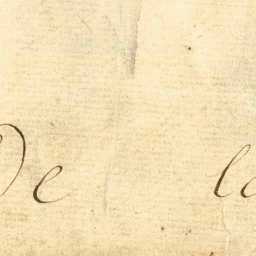 De la